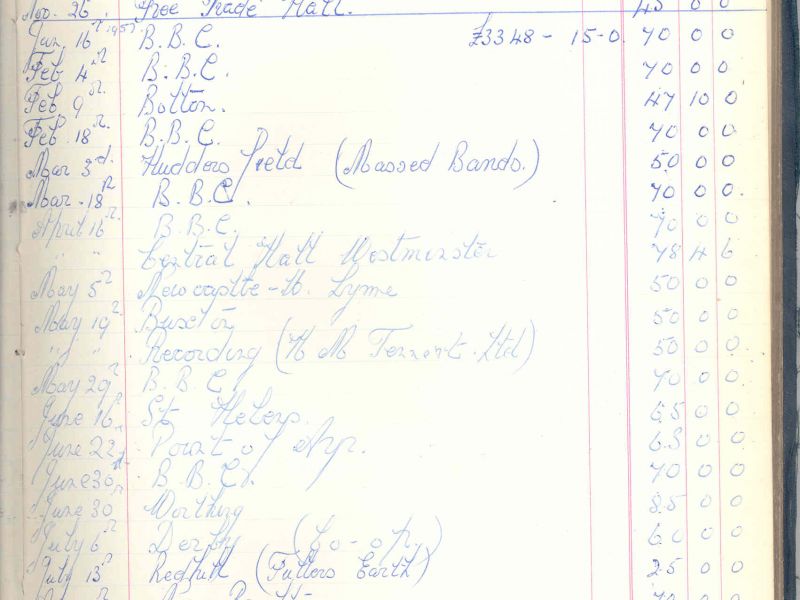 Nov. 26. Free Trade Hall. 45 0 0
Jan. 16th 1957 B.B.C. £3348-15-0. 70 0 0
Feb 4th B.B.C. 70 0 0
Feb 9th Bolton. 47 10 0
Feb. 18th B.B.C. 70 0 0
Mar 3rd. Huddersfield (Massed Bands.) 50 0 0
Mar. 18th B.B.C. 70 0 0.
April 16th. B.B.C. 70 0 0
" " Central Hall Westminster 78 4 6
May 5th Newcastle-U. Lyme 50 0 0
May 19th Buxton 50 0 0
" " Recording (H M Tennent. Ltd) 50 0 0
May 29th B.B.C. 70 0 0
June 16th St Helens. 65 0 0
June 22nd Point of Ayr. 63 0 0
June 30th B.B.C. 70 0 0
June 30 Worthing 85 0 0
July 6th Derby (Co-op.) 60 0 0
July 13th Redhill (Fullers Earth) 25 0 0
70 0 0